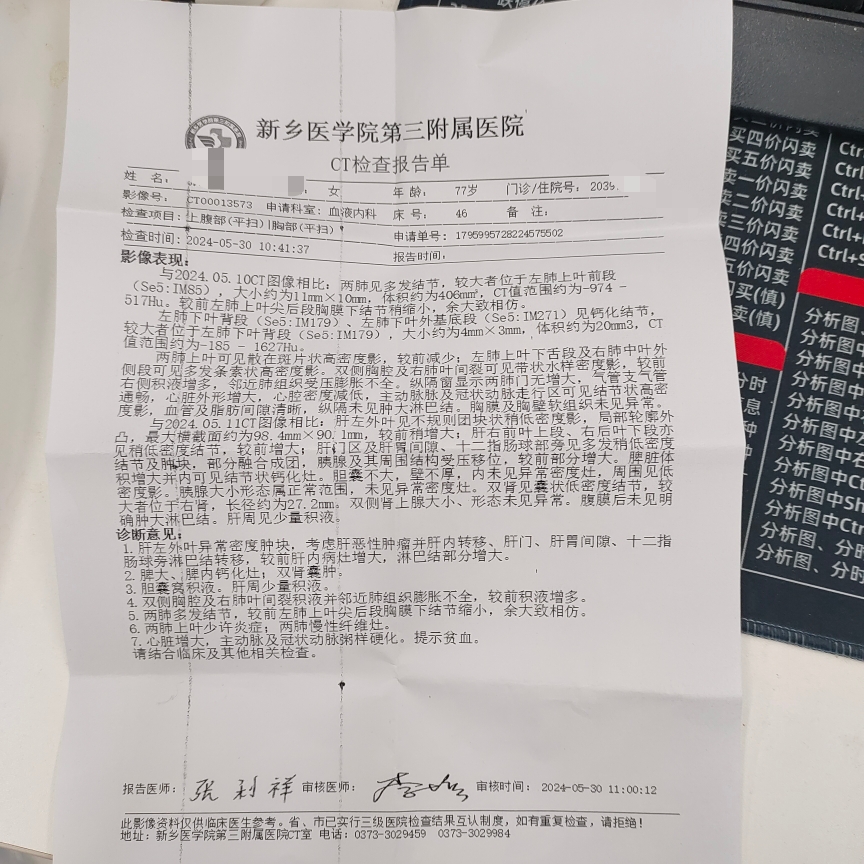 新乡医学院第三附属医院
CT检查报告单
姓 名： 女 年 龄： 77岁 门诊/住院号： 2039
影像号： CT00013573 申请科室：血液内科 床 号： 46 备 注：
检查项目：上腹部(平扫)|胸部(平扫) 申请单号： 1795995728224575502
检查时间：2024-05-30 10:41:37 报告时间：
影像表现：
与2024.05.10CT图像相比：两肺见多发结节，较大者位于左肺上叶前段
（Se5:IM85），大小约为11mm×10mm，体积约为406mm³，CT值范围约为-974 -
517Hu。较前左肺上叶尖后段胸膜下结节稍缩小，余大致相仿。
左肺下叶背段（Se5:IM179）、左肺下叶外基底段（Se5:IM271）见钙化结节，
较大者位于左肺下叶背段（Se5:IM179），大小约为4mm×3mm，体积约为20mm3，CT
值范围约为-185 - 1627Hu。
两肺上叶可见散在斑片状高密度影，较前减少；左肺上叶下舌段及右肺中叶外
侧段可见多发条索状高密度影。双侧胸腔及右肺叶间裂可见带状水样密度影，较前
右侧积液增多，邻近肺组织受压膨胀不全。纵隔窗显示两肺门无增大，气管支气管
通畅，心脏外形增大，心腔密度减低，主动脉及冠状动脉走行区可见结节状高密
度影，血管及脂肪间隙清晰，纵隔未见肿大淋巴结。胸膜及胸壁软组织未见异常。
与2024.05.11CT图像相比：肝左外叶见不规则团块状稍低密度影，局部轮廓外
凸，最大横截面约为98.4mm×90.1mm，较前稍增大；肝右前叶上段、右后叶下段亦
见稍低密度结节，较前增大；肝门区及肝胃间隙、十二指肠球部旁见多发稍低密度
结节及肿块，部分融合成团，胰腺及其周围结构受压移位，较前部分增大。脾脏体
积增大并内可见结节状钙化灶。胆囊不大，壁不厚，内未见异常密度灶，周围见低
密度影。胰腺大小形态属正常范围，未见异常密度灶。双肾见囊状低密度结节，较
大者位于右肾，长径约为27.2mm。双侧肾上腺大小、形态未见异常。腹膜后未见明
确肿大淋巴结。肝周见少量积液。
诊断意见：
1.肝左外叶异常密度肿块，考虑肝恶性肿瘤并肝内转移、肝门、肝胃间隙、十二指
肠球旁淋巴结转移，较前肝内病灶增大，淋巴结部分增大。
2.脾大、脾内钙化灶；双肾囊肿。
3.胆囊窝积液。肝周少量积液。
4.双侧胸腔及右肺叶间裂积液并邻近肺组织膨胀不全，较前积液增多。
5.两肺多发结节，较前左肺上叶尖后段胸膜下结节缩小，余大致相仿。
6.两肺上叶少许炎症；两肺慢性纤维灶。
7.心脏增大，主动脉及冠状动脉粥样硬化。提示贫血。
请结合临床及其他相关检查。
报告医师： 张利祥 审核医师： 审核时间： 2024-05-30 11:00:12
此影像资料仅供临床医生参考。省、市已实行三级医院检查结果互认制度，如有重复检查，请拒绝！
地址：新乡医学院第三附属医院CT室 电话：0373-3029459 0373-3029984
买四价闪卖
买五价闪卖
Ctrl+
Ctrl+S
分析图中
分析图、分时